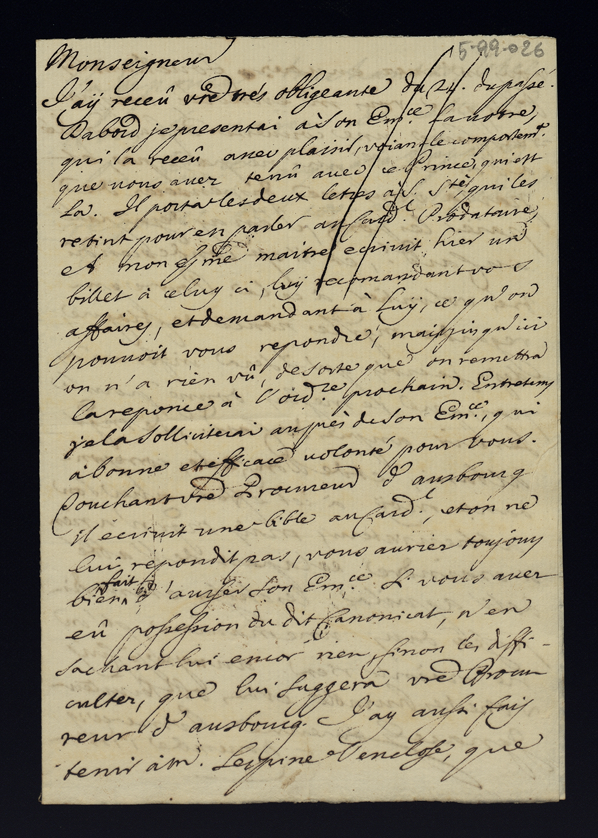 5-99-026
Monseigneur
J'aÿ receû vrẽ trés obligeante du 24. du passé.
D'abord je presentai à Son Em.ce la votre
qui la receû avec plaisir, voiant le comportem.t
que vous avez tenû avec ce Prince, qui est
la. Il porta les deux letres à S. S.té qui les
retint pour en parler au Card.l Prodataire,
et mon Em.me maitre ecrivit hier un
billet à celuy ci, luy recomandant vos
affaires, et demandant à Luÿ, ce qu'on
pouvoit vous repondre, mais jusqu'ici
on n'a rien vû, de sorte que on remettra
la reponce à l'ord.re prochain. Entretems
je la solliciterai auprès de son Em.ce, qui
a bonne et efficace volonté pour vous.
Touchant vrẽ Procureur d'ausbourg
il ecrivit une bible au Card.l, et on ne
lui repondit pas, vous auriez toujours
bien fait d'aviser Son Em.ce Si vous avez
eû possession du dit Canonicat, n'en
sachant lui encor rien, sinon les diffi-
cultez, que lui suggera vrẽ Procu-
reur d'ausbourg. J'ay aussi fais
tenir à M. Lespine l'enclose, que